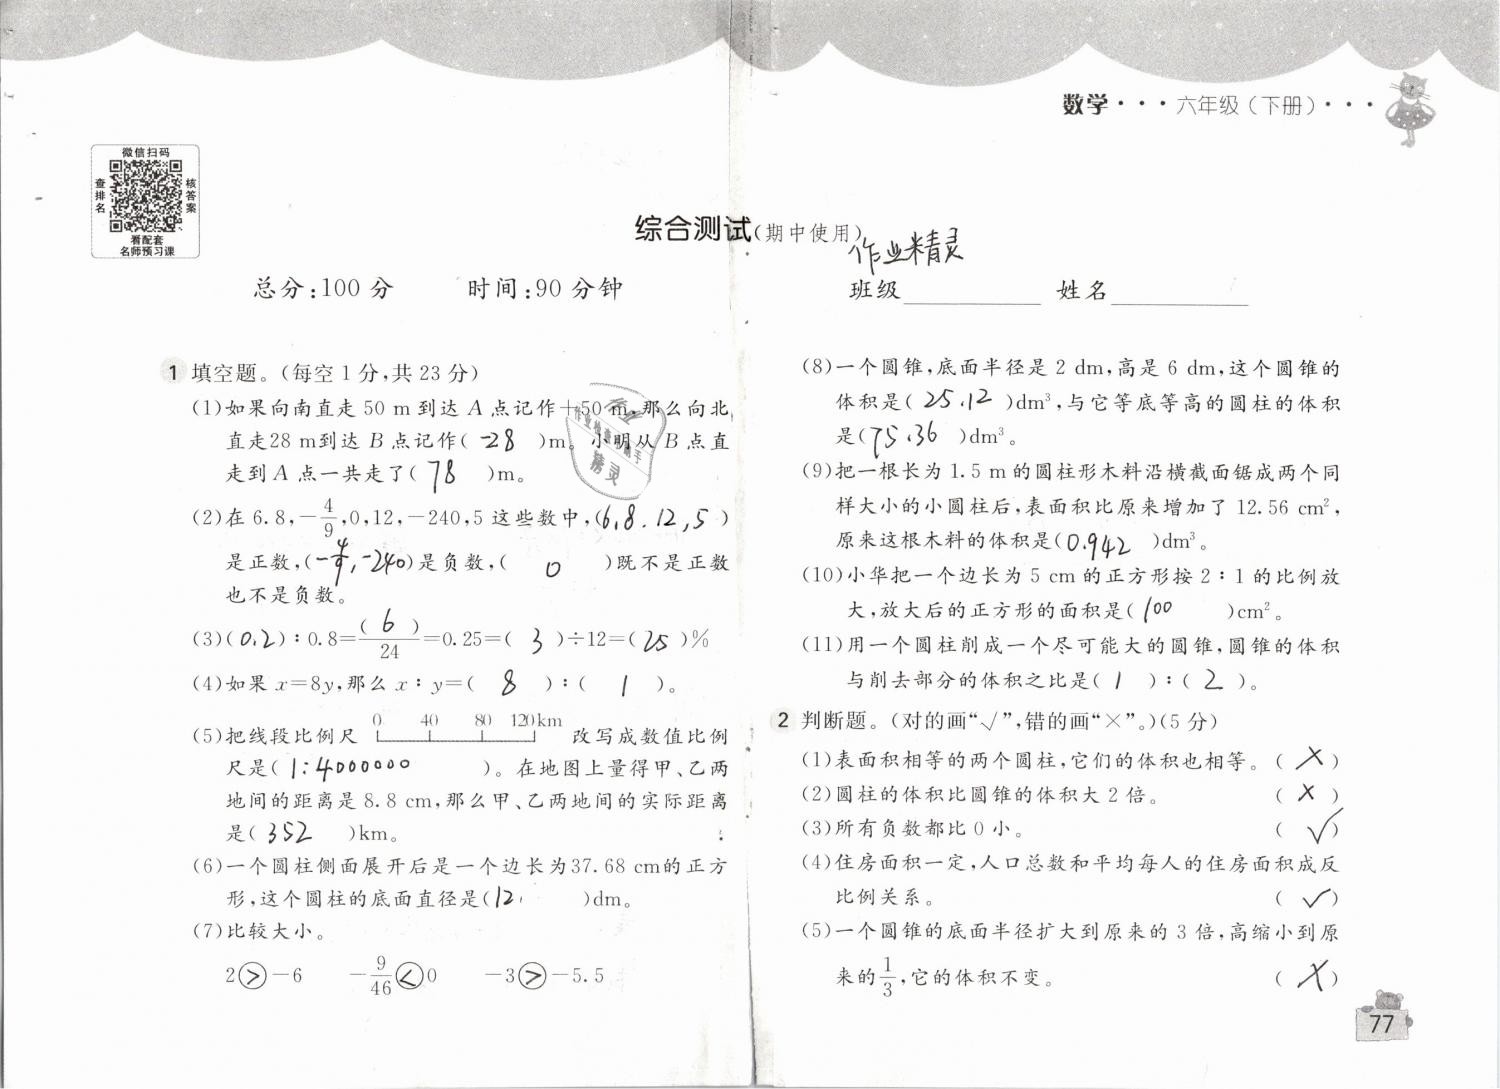 数学···六年级(下册)···
微信扫码
查排名
核答案
看配套
名师预习课
综合测试(期中使用)
作业精灵
总分:100 分 时间:90 分钟 班级 姓名
1 填空题。(每空 1 分,共 23 分)
(1)如果向南直走 50 m 到达 A 点记作+50 m,那么向北
直走28 m到达 B 点记作( -28 )m。小明从 B 点直
走到 A 点一共走了( 78 )m。
(2)在 6.8,-4/9,0,12,-240,5 这些数中,(6.8.12,5 )
是正数,(-4/9,-240)是负数,( 0 )既不是正数
也不是负数。
(3)(0.2):0.8=( 6 )/24=0.25=( 3 )÷12=(25 )%
(4)如果 x=8y,那么 x:y=( 8 ):( 1 )。
0 40 80 120km
(5)把线段比例尺 改写成数值比例
尺是( 1:4000000 )。在地图上量得甲、乙两
地间的距离是 8.8 cm,那么甲、乙两地间的实际距离
是( 352 )km。
(6)一个圆柱侧面展开后是一个边长为37.68 cm的正方
形,这个圆柱的底面直径是(12. )dm。
(7)比较大小。
2>-6 -9/46<0 -3>-5.5
作业
作业检查小助手
精灵
(8)一个圆锥,底面半径是 2 dm,高是 6 dm,这个圆锥的
体积是( 25.12 )dm³,与它等底等高的圆柱的体积
是(75.36 )dm³。
(9)把一根长为 1.5 m 的圆柱形木料沿横截面锯成两个同
样大小的小圆柱后,表面积比原来增加了 12.56 cm²,
原来这根木料的体积是(0.942 )dm³。
(10)小华把一个边长为 5 cm 的正方形按 2:1 的比例放
大,放大后的正方形的面积是(100 )cm²。
(11)用一个圆柱削成一个尽可能大的圆锥,圆锥的体积
与削去部分的体积之比是( 1 ):( 2 )。
2 判断题。(对的画“√”,错的画“×”。)(5 分)
(1)表面积相等的两个圆柱,它们的体积也相等。( × )
(2)圆柱的体积比圆锥的体积大 2 倍。( × )
(3)所有负数都比 0 小。( √ )
(4)住房面积一定,人口总数和平均每人的住房面积成反
比例关系。( √ )
(5)一个圆锥的底面半径扩大到原来的 3 倍,高缩小到原
来的1/3,它的体积不变。( × )
77